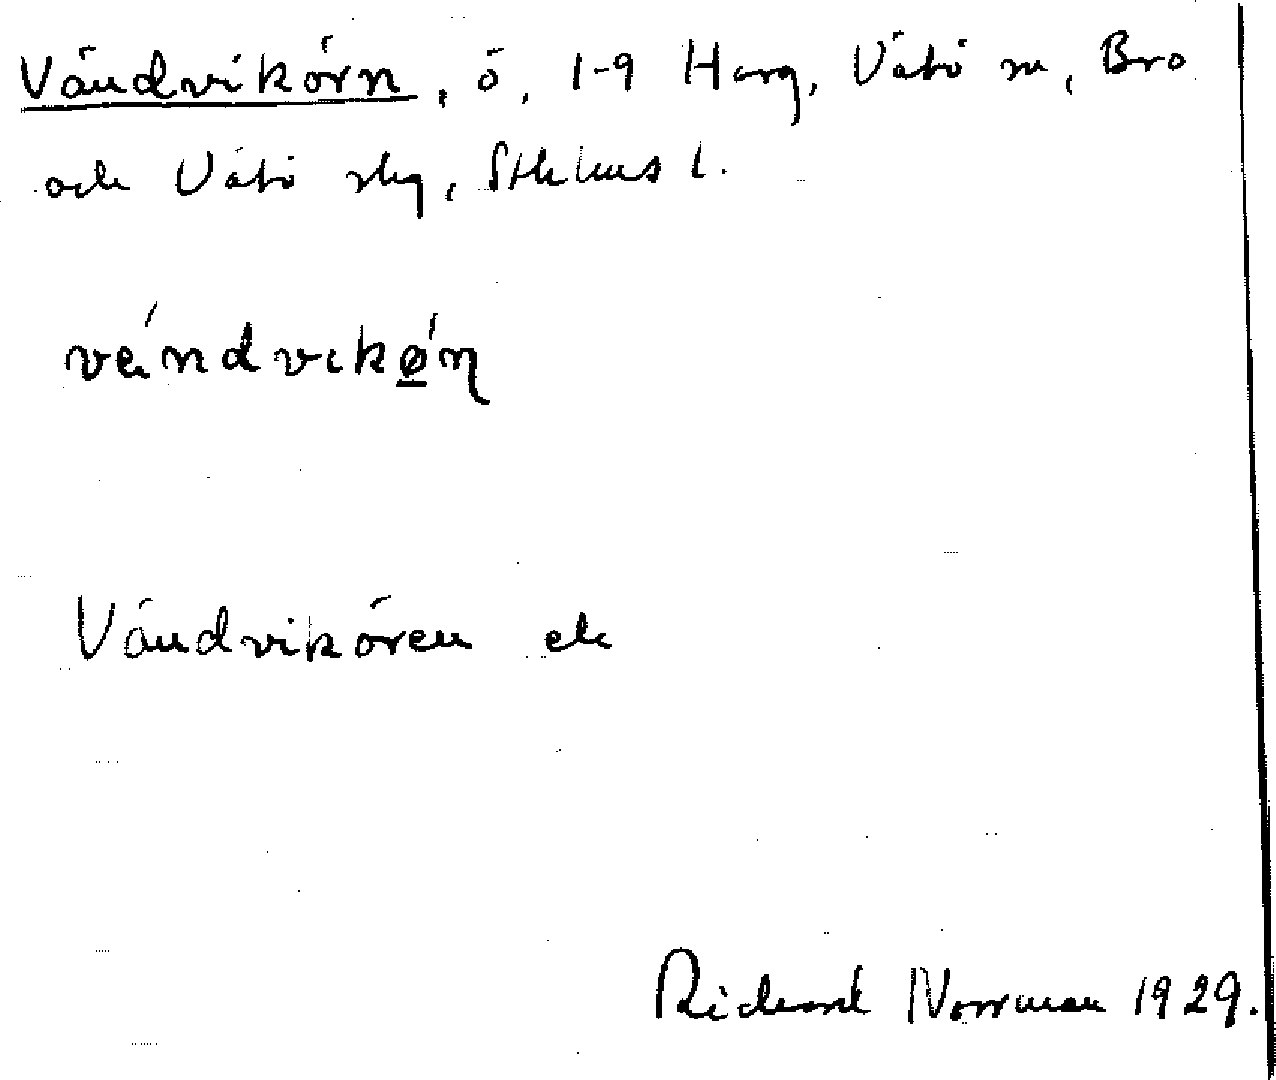 Vändvikörn, ö, 1-9 Harg, Vätö sn, Bro
och Vätö skg, Sthlms l.
vändvikǿ̲ɳ
Vändvikören ek
Rickard Norrman 1929.